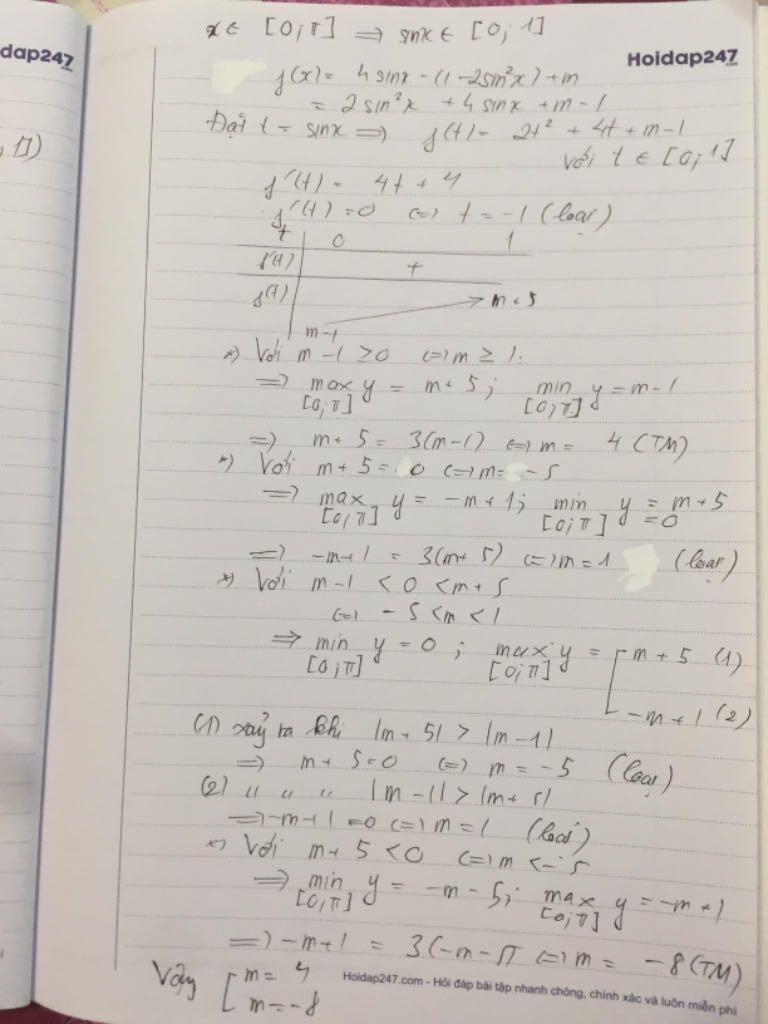 dap247
.com
, 1])
x ∈ [0; π] => sinx ∈ [0; 1]
Hoidap247
.com
f(x) = 4 sinx - (1 - 2sin²x) + m
= 2 sin²x + 4 sinx + m - 1
Đặt t = sinx => f(t) = 2t² + 4t + m - 1
với t ∈ [0; 1]
f'(t) = 4t + 4
f'(t) = 0 <=> t = -1 (loại)
t 0 1
f'(t) +
f(t) m + 5
m - 1
*) Với m - 1 ≥ 0 <=> m ≥ 1.
=> max y = m + 5; min y = m - 1
[0; π] [0; π]
=> m + 5 = 3(m - 1) <=> m = 4 (TM)
*) Với m + 5 = 0 <=> m = -5
=> max y = -m + 1; min y = m + 5
[0; π] [0; π] = 0
=> -m + 1 = 3(m + 5) <=> m = 1 (loại)
*) Với m - 1 < 0 < m + 5
<=> -5 < m < 1
=> min y = 0; max y = [ m + 5 (1)
[0; π] [0; π]
-m + 1 (2)
(1) xảy ra khi |m + 5| > |m - 1|
=> m + 5 = 0 <=> m = -5 (loại)
(2) " " " |m - 1| > |m + 5|
=> -m + 1 = 0 <=> m = 1 (loại)
*) Với m + 5 < 0 <=> m < -5
=> min y = -m - 5; max y = -m + 1
[0; π] [0; π]
=> -m + 1 = 3(-m - 5) <=> m = -8 (TM)
Vậy [ m = 4
m = -8
Hoidap247.com - Hỏi đáp bài tập nhanh chóng, chính xác và luôn miễn phí